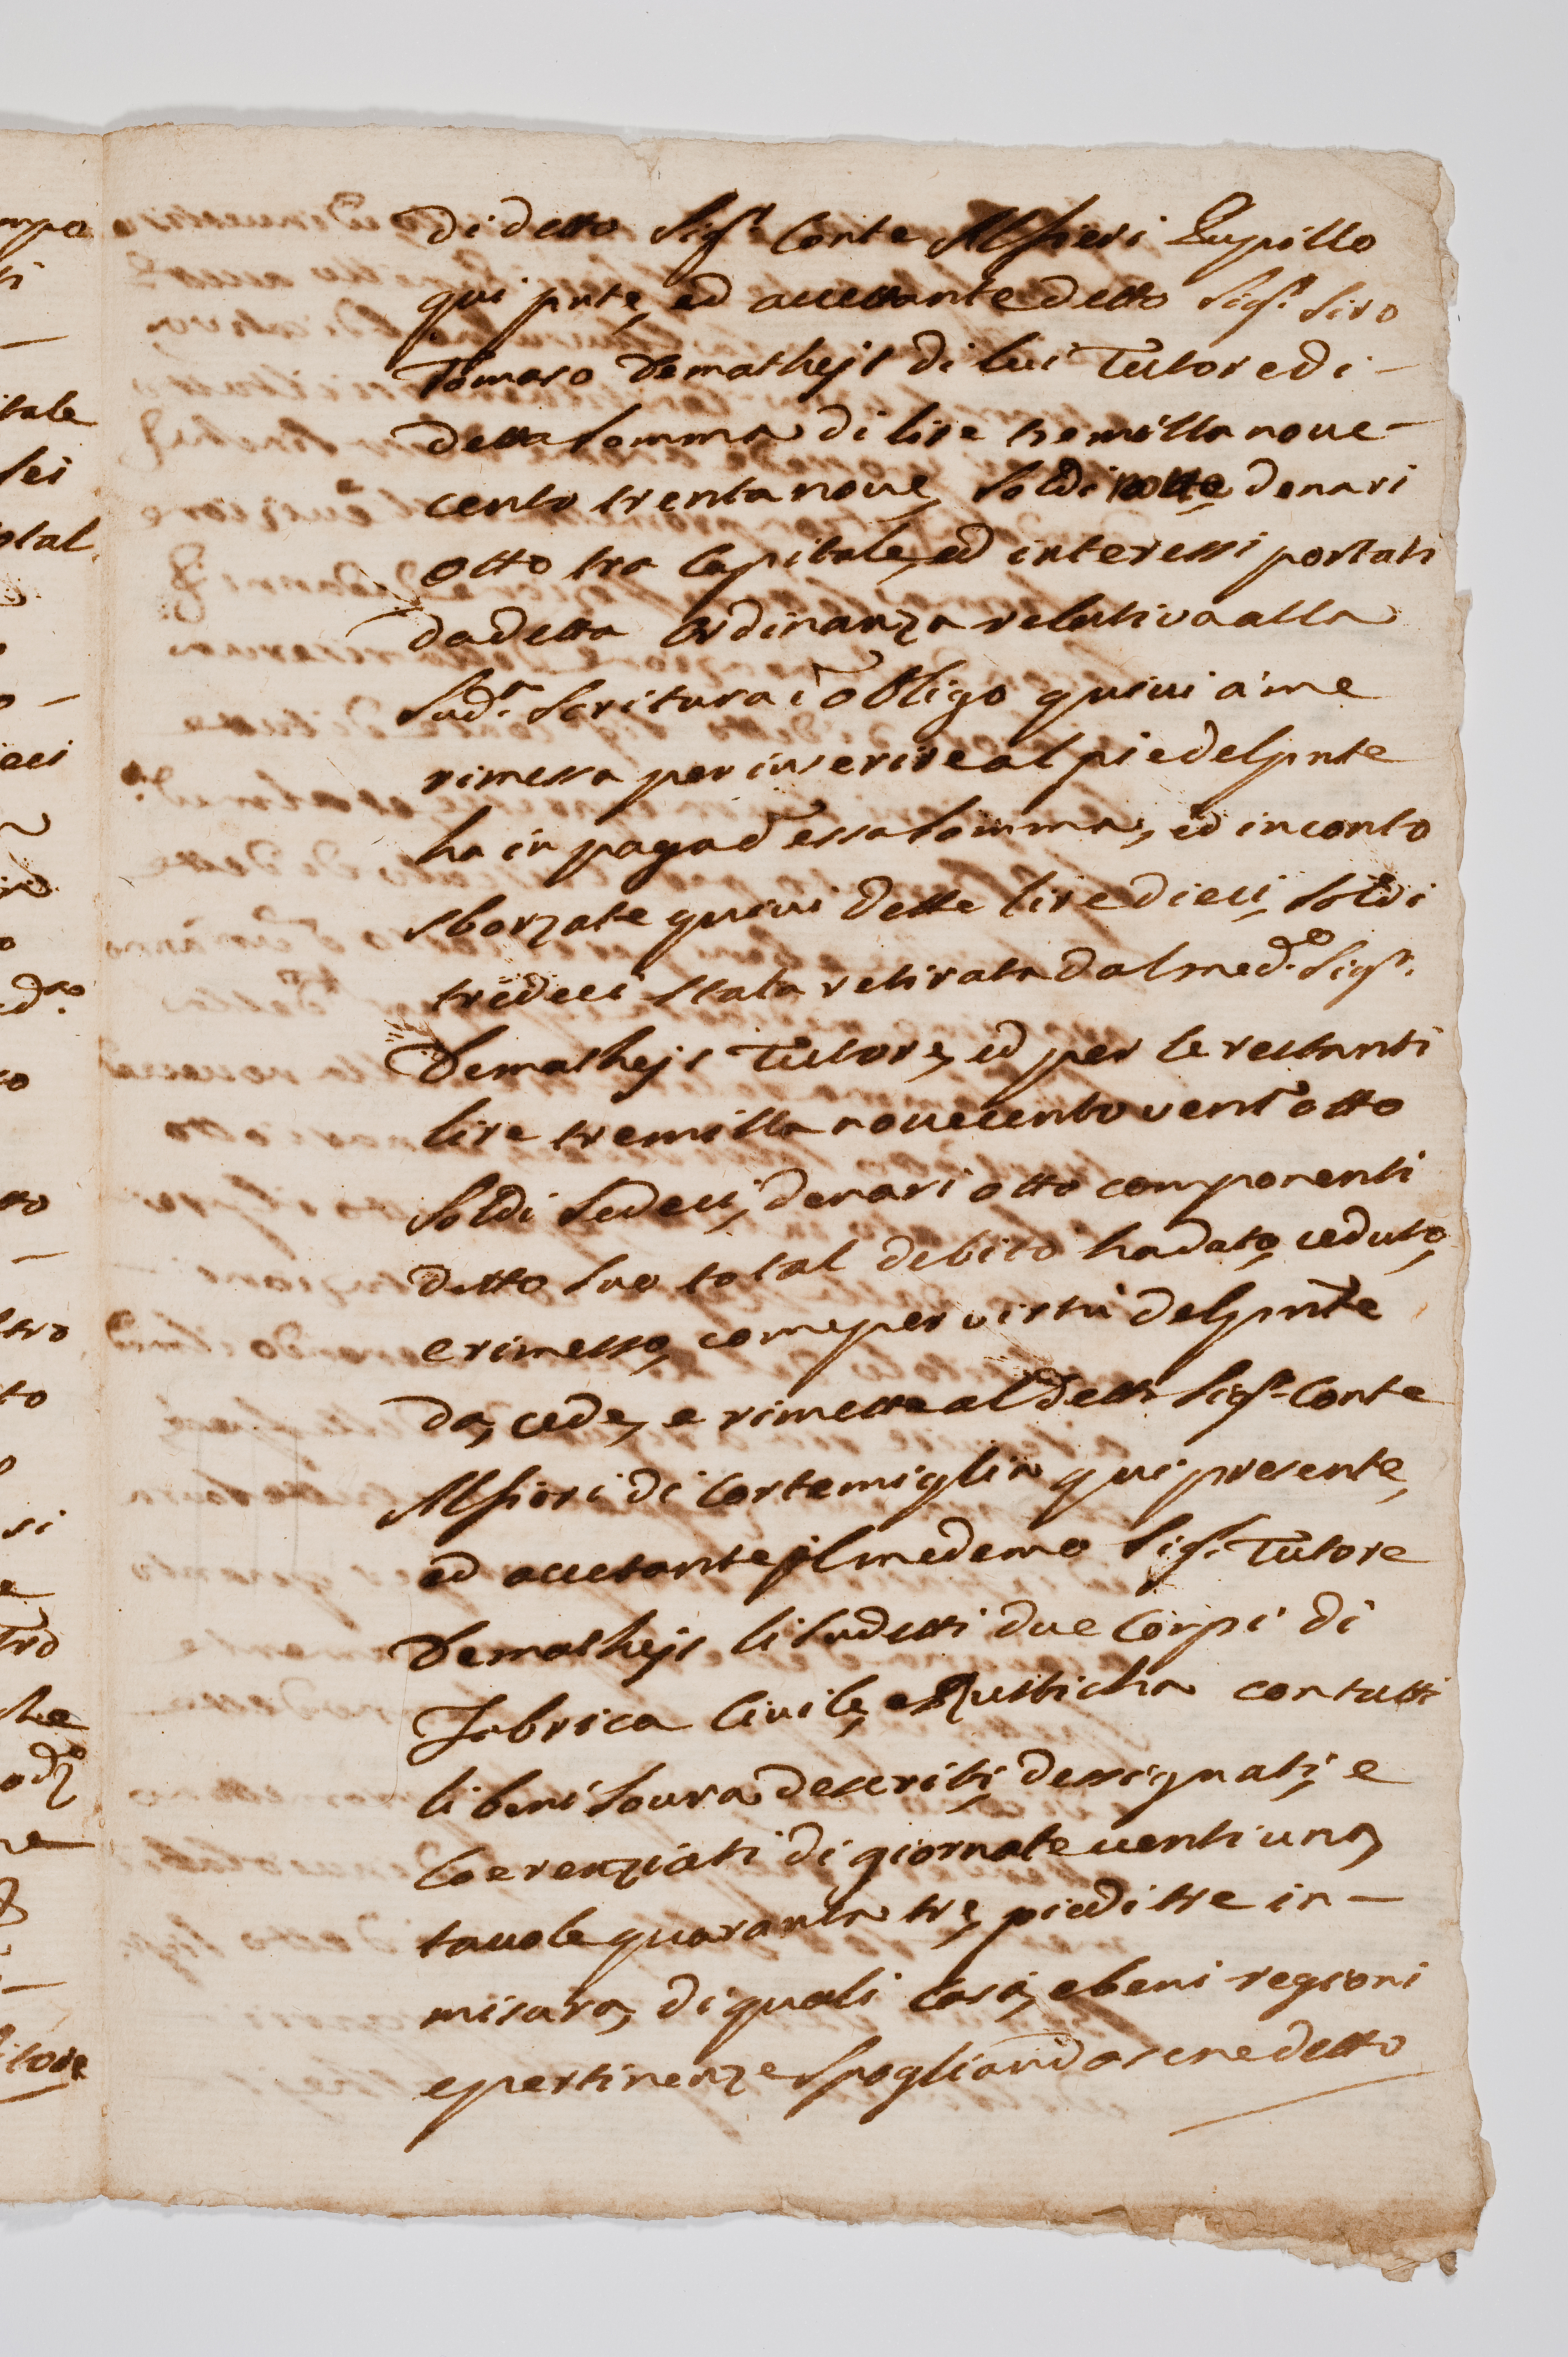 di detto Sig.r Conte Alfieri Pupillo
qui pnte, ed accettante detto Sig.r Siro
Tomaso Demathejs di lui Tutore di
detta somma di lire tremilla nove-
cento trentanove, soldi nove, denari
otto tra Capitale, ed interessi portati
da detta ordinanza relativa alla
Sud.a Scritura d'obligo quivi a me
rimessa per inserire al pie del pnte
ha in paga d'essa somma, ed in conto
sborzate quivi dette lire dieci, soldi
tredeci stata retirata dal med.o Sig.r
Demathejs Tutore, ed per le restanti
lire tremilla novecento vent'otto
soldi sedeci, denari otto componenti
detto suo total debito ha dato, ceduto,
e rimesso, come per virtù del pnte
da, cede, e rimette al detto Sig.r Conte
Alfieri di Cortemiglia qui presente,
ed accetante il medemo Sig.r Tutore
Demathejs li sudetti due Corpi di
Fabrica Civile, e Rusticha con tutti
li beni soura descriti, dessignati, e
Coerenziati di giornate venti una,
tavole quaranta tre, piedi tre in-
misura, di quali casi, e beni regioni
e pertinenze spogliandosene detto